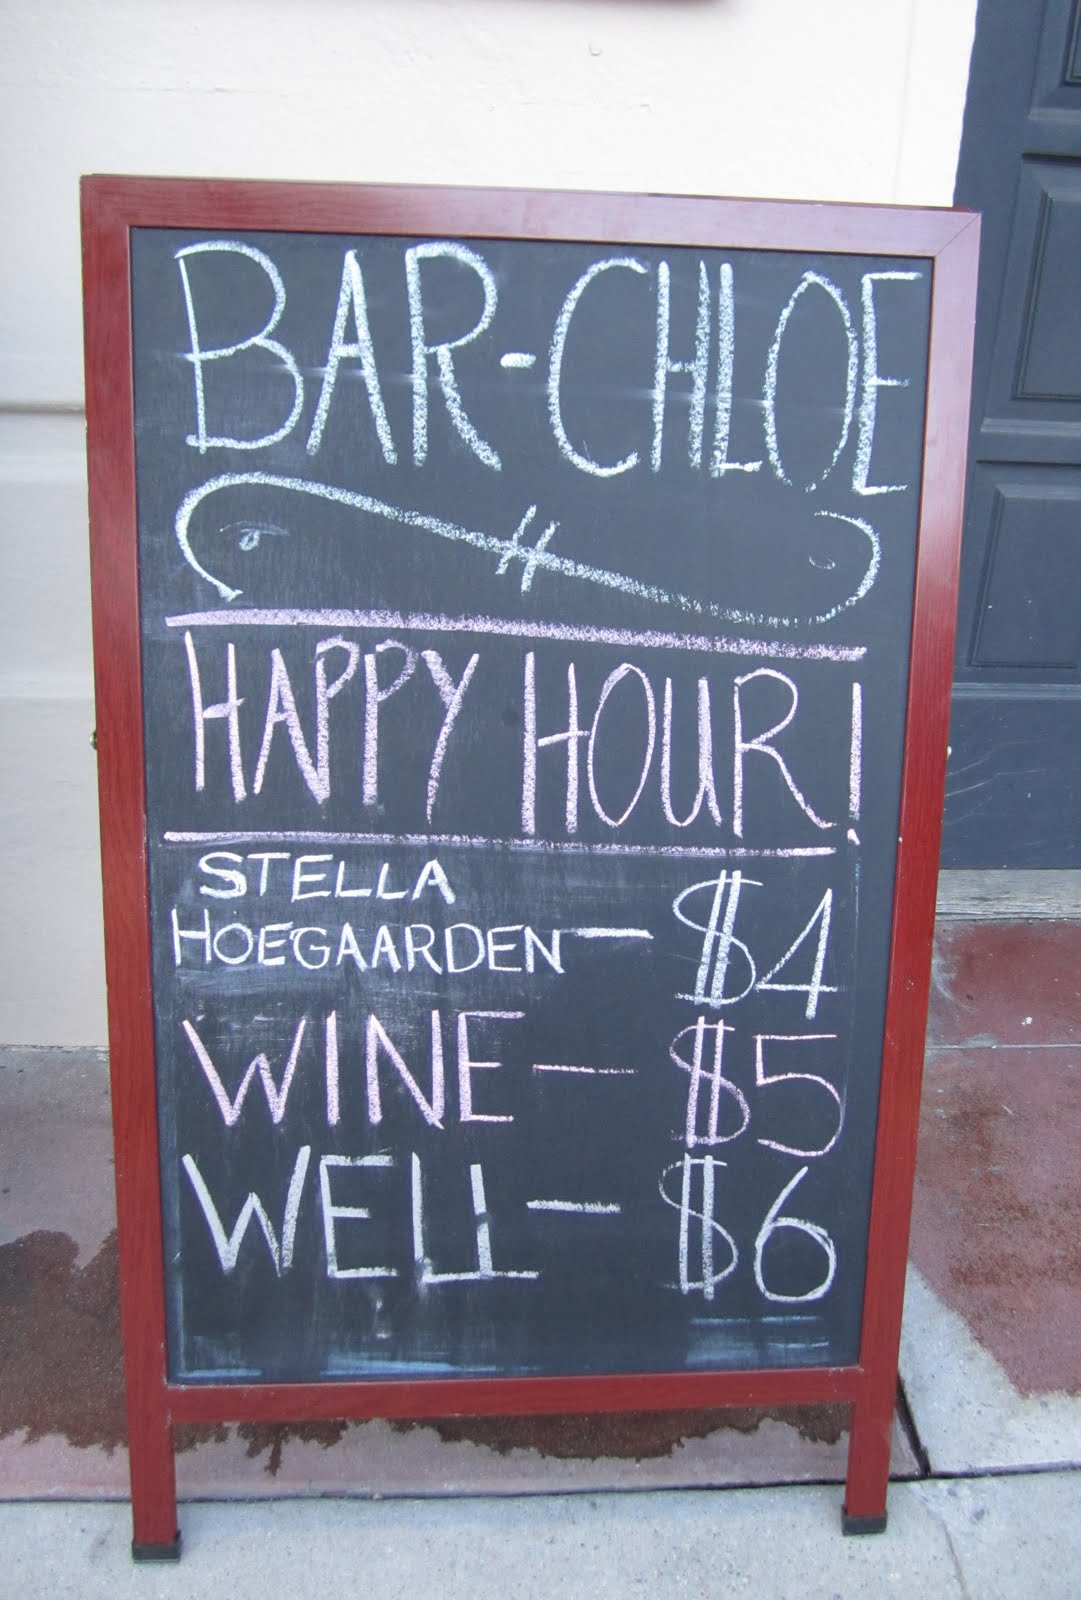 BAR-CHLOE
HAPPY HOUR!
STELLA
HOEGAARDEN — $4
WINE — $5
WELL — $6